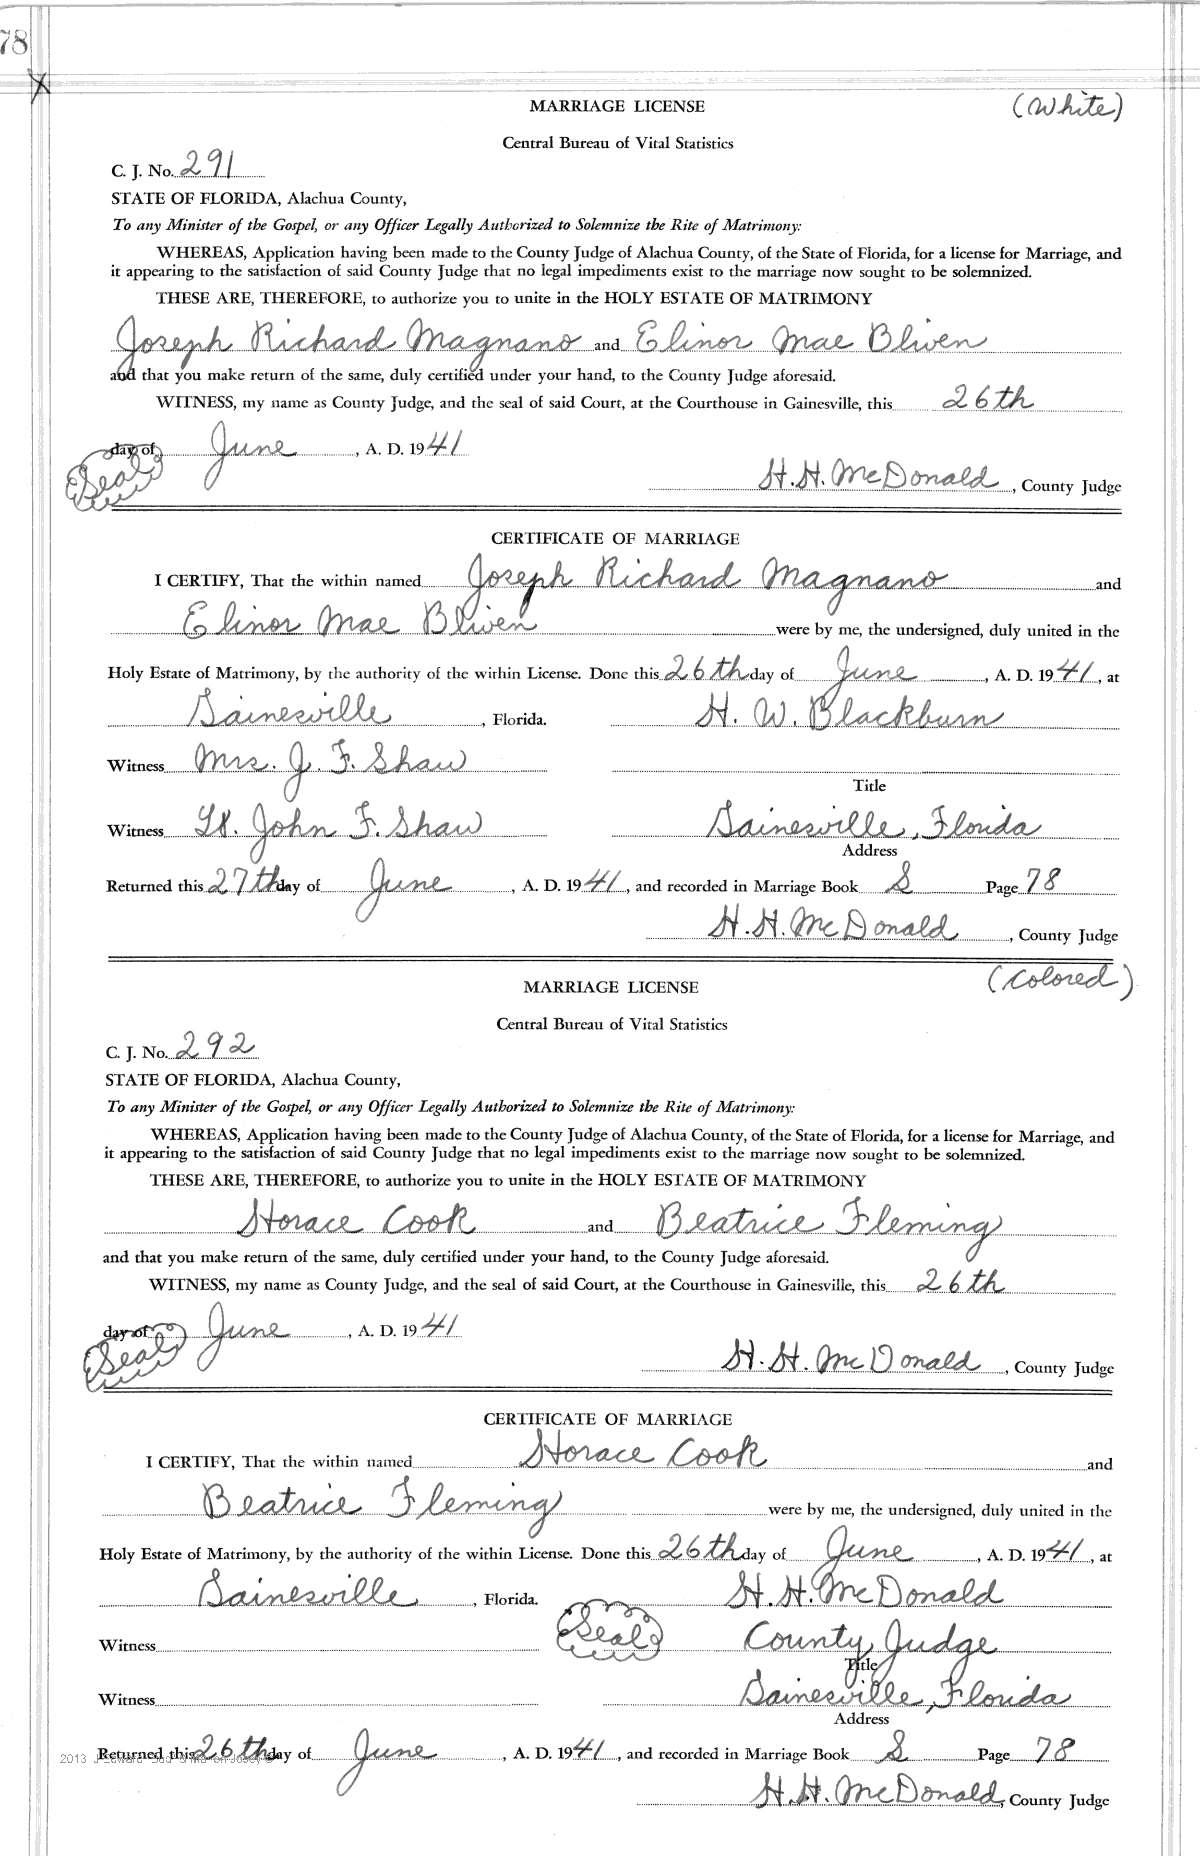 78
X
MARRIAGE LICENSE (White)
Central Bureau of Vital Statistics
C. J. No. 291
STATE OF FLORIDA, Alachua County,
To any Minister of the Gospel, or any Officer Legally Authorized to Solemnize the Rite of Matrimony:
WHEREAS, Application having been made to the County Judge of Alachua County, of the State of Florida, for a license for Marriage, and
it appearing to the satisfaction of said County Judge that no legal impediments exist to the marriage now sought to be solemnized.
THESE ARE, THEREFORE, to authorize you to unite in the HOLY ESTATE OF MATRIMONY
Joseph Richard Magnano and Elinor Mae Bliven
and that you make return of the same, duly certified under your hand, to the County Judge aforesaid.
WITNESS, my name as County Judge, and the seal of said Court, at the Courthouse in Gainesville, this 26th
day of June, A. D. 1941
Seal
H. H. McDonald, County Judge
CERTIFICATE OF MARRIAGE
I CERTIFY, That the within named Joseph Richard Magnano and
Elinor Mae Bliven were by me, the undersigned, duly united in the
Holy Estate of Matrimony, by the authority of the within License. Done this 26th day of June, A. D. 1941, at
Gainesville, Florida. H. W. Blackburn
Witness Mrs. J. F. Shaw
Title
Witness Lt. John F. Shaw Gainesville, Florida
Address
Returned this 27th day of June, A. D. 1941, and recorded in Marriage Book S Page 78
H. H. McDonald, County Judge
MARRIAGE LICENSE (Colored)
Central Bureau of Vital Statistics
C. J. No. 292
STATE OF FLORIDA, Alachua County,
To any Minister of the Gospel, or any Officer Legally Authorized to Solemnize the Rite of Matrimony:
WHEREAS, Application having been made to the County Judge of Alachua County, of the State of Florida, for a license for Marriage, and
it appearing to the satisfaction of said County Judge that no legal impediments exist to the marriage now sought to be solemnized.
THESE ARE, THEREFORE, to authorize you to unite in the HOLY ESTATE OF MATRIMONY
Horace Cook and Beatrice Fleming
and that you make return of the same, duly certified under your hand, to the County Judge aforesaid.
WITNESS, my name as County Judge, and the seal of said Court, at the Courthouse in Gainesville, this 26th
day of June, A. D. 1941
Seal
H. H. McDonald, County Judge
CERTIFICATE OF MARRIAGE
I CERTIFY, That the within named Horace Cook and
Beatrice Fleming were by me, the undersigned, duly united in the
Holy Estate of Matrimony, by the authority of the within License. Done this 26th day of June, A. D. 1941, at
Gainesville, Florida. H. H. McDonald
Witness Seal County Judge
Title
Witness Gainesville, Florida
Address
Returned this 26th day of June, A. D. 1941, and recorded in Marriage Book S Page 78
2013
H. H. McDonald, County Judge